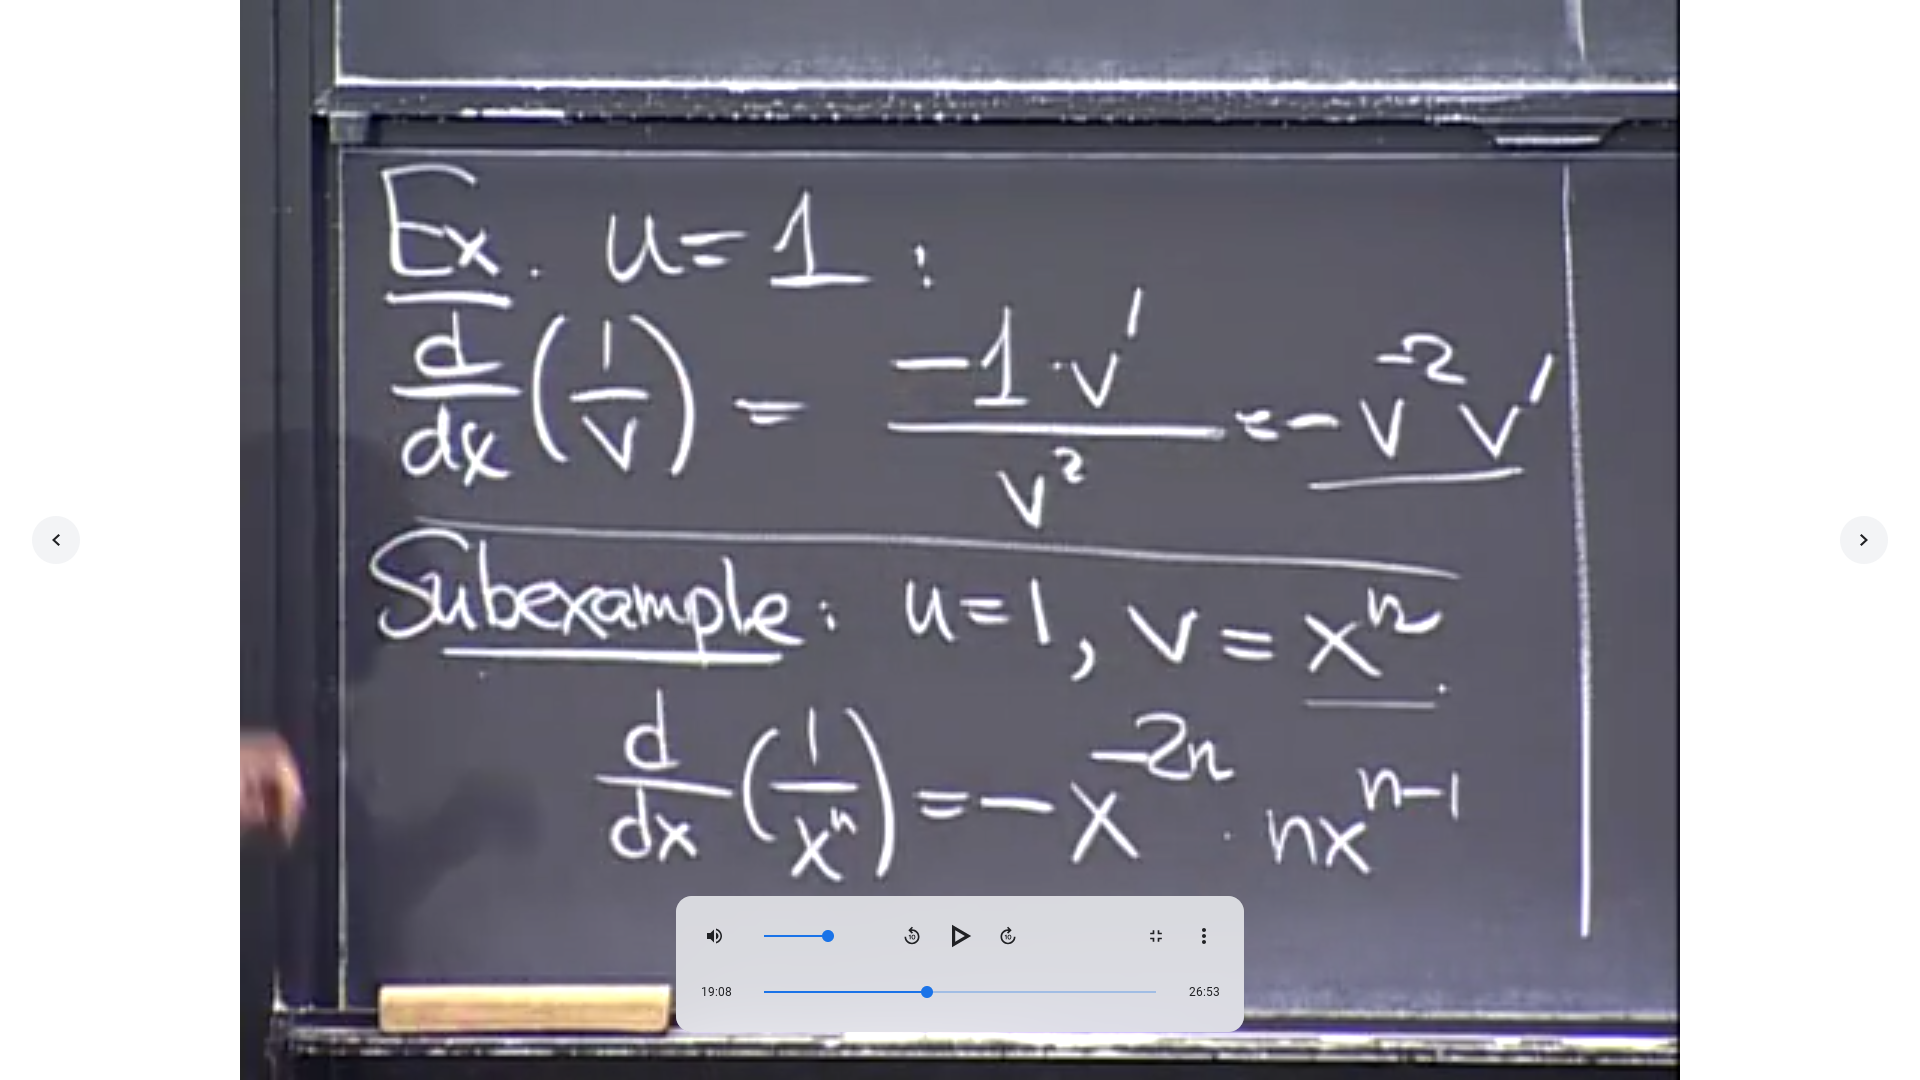 Ex. u = 1 :
d/dx (1/v) = -1·v'/v² = -v⁻² v'
Subexample: u = 1, v = xⁿ.
d/dx (1/xⁿ) = -x⁻²ⁿ · nxⁿ⁻¹
10 10
19:08 26:53